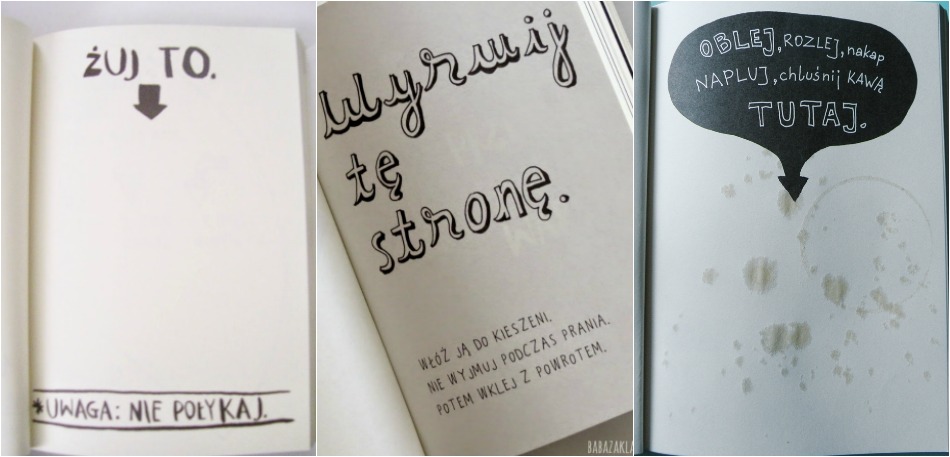 ŻUJ TO.
*UWAGA: NIE POŁYKAJ.
Wyrwij
tę
stronę.
WŁÓŻ JĄ DO KIESZENI.
NIE WYJMUJ PODCZAS PRANIA.
POTEM WKLEJ Z POWROTEM.
BABAZAKLA
OBLEJ, ROZLEJ, nakap
NAPLUJ, chluśnij KAWĄ
TUTAJ.